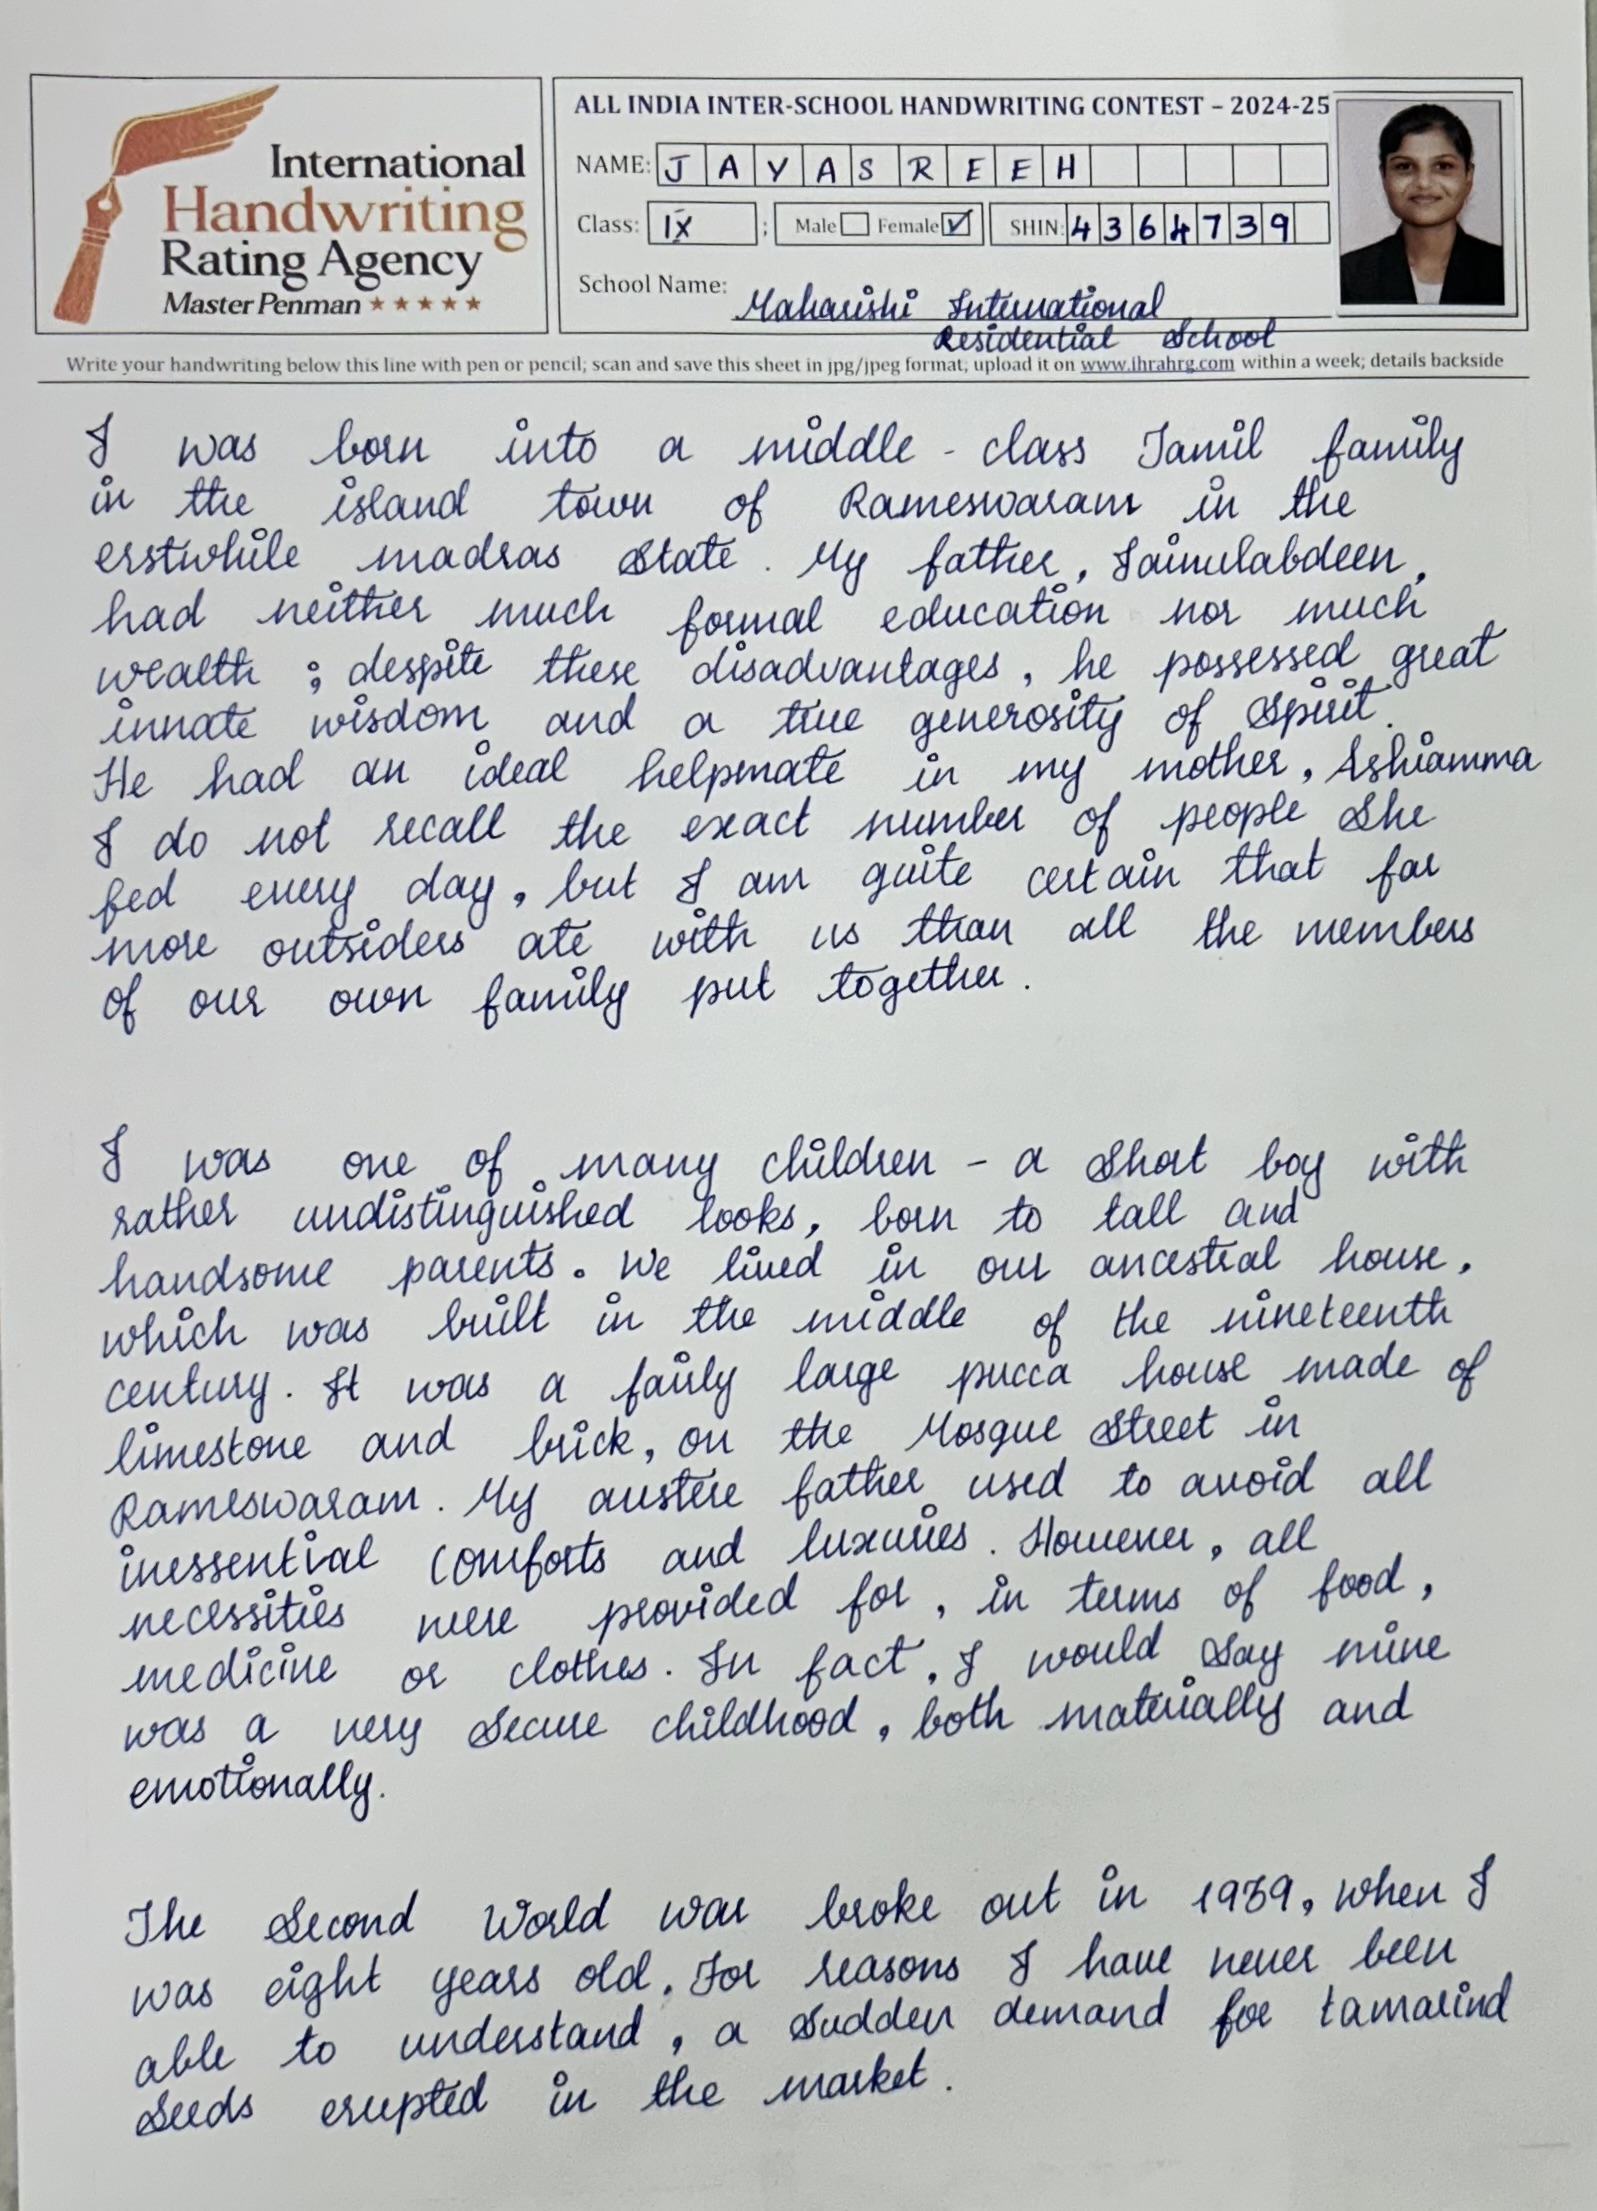 International
Handwriting
Rating Agency
Master Penman ★★★★★
ALL INDIA INTER-SCHOOL HANDWRITING CONTEST – 2024-25
NAME: JAYASREEH
Class: IX ; Male Female ✓ SHIN: 4364739
School Name: Maharishi International
Residential School
Write your handwriting below this line with pen or pencil; scan and save this sheet in jpg/jpeg format; upload it on www.ihrahrg.com within a week; details backside
I was born into a middle - class Tamil family
in the island town of Rameswaram in the
erstwhile madras State. My father, Jainulabdeen,
had neither much formal education nor much
wealth ; despite these disadvantages, he possessed great
innate wisdom and a true generosity of Spirit.
He had an ideal helpmate in my mother, Ashiamma
I do not recall the exact number of people She
fed every day, but I am quite certain that far
more outsiders ate with us than all the members
of our own family put together.
I was one of many children – a Short boy with
rather undistinguished looks, born to tall and
handsome parents. We lived in our ancestral house,
which was built in the middle of the nineteenth
century. It was a fairly large pucca house made of
limestone and brick, on the Mosque Street in
Rameswaram. My austere father used to avoid all
inessential comforts and luxuries. However, all
necessities were provided for, in terms of food,
medicine or clothes. In fact, I would Say mine
was a very Secure childhood, both materially and
emotionally.
The Second World war broke out in 1939, when I
was eight years old. For reasons I have never been
able to understand, a Sudden demand for tamarind
Seeds erupted in the market.